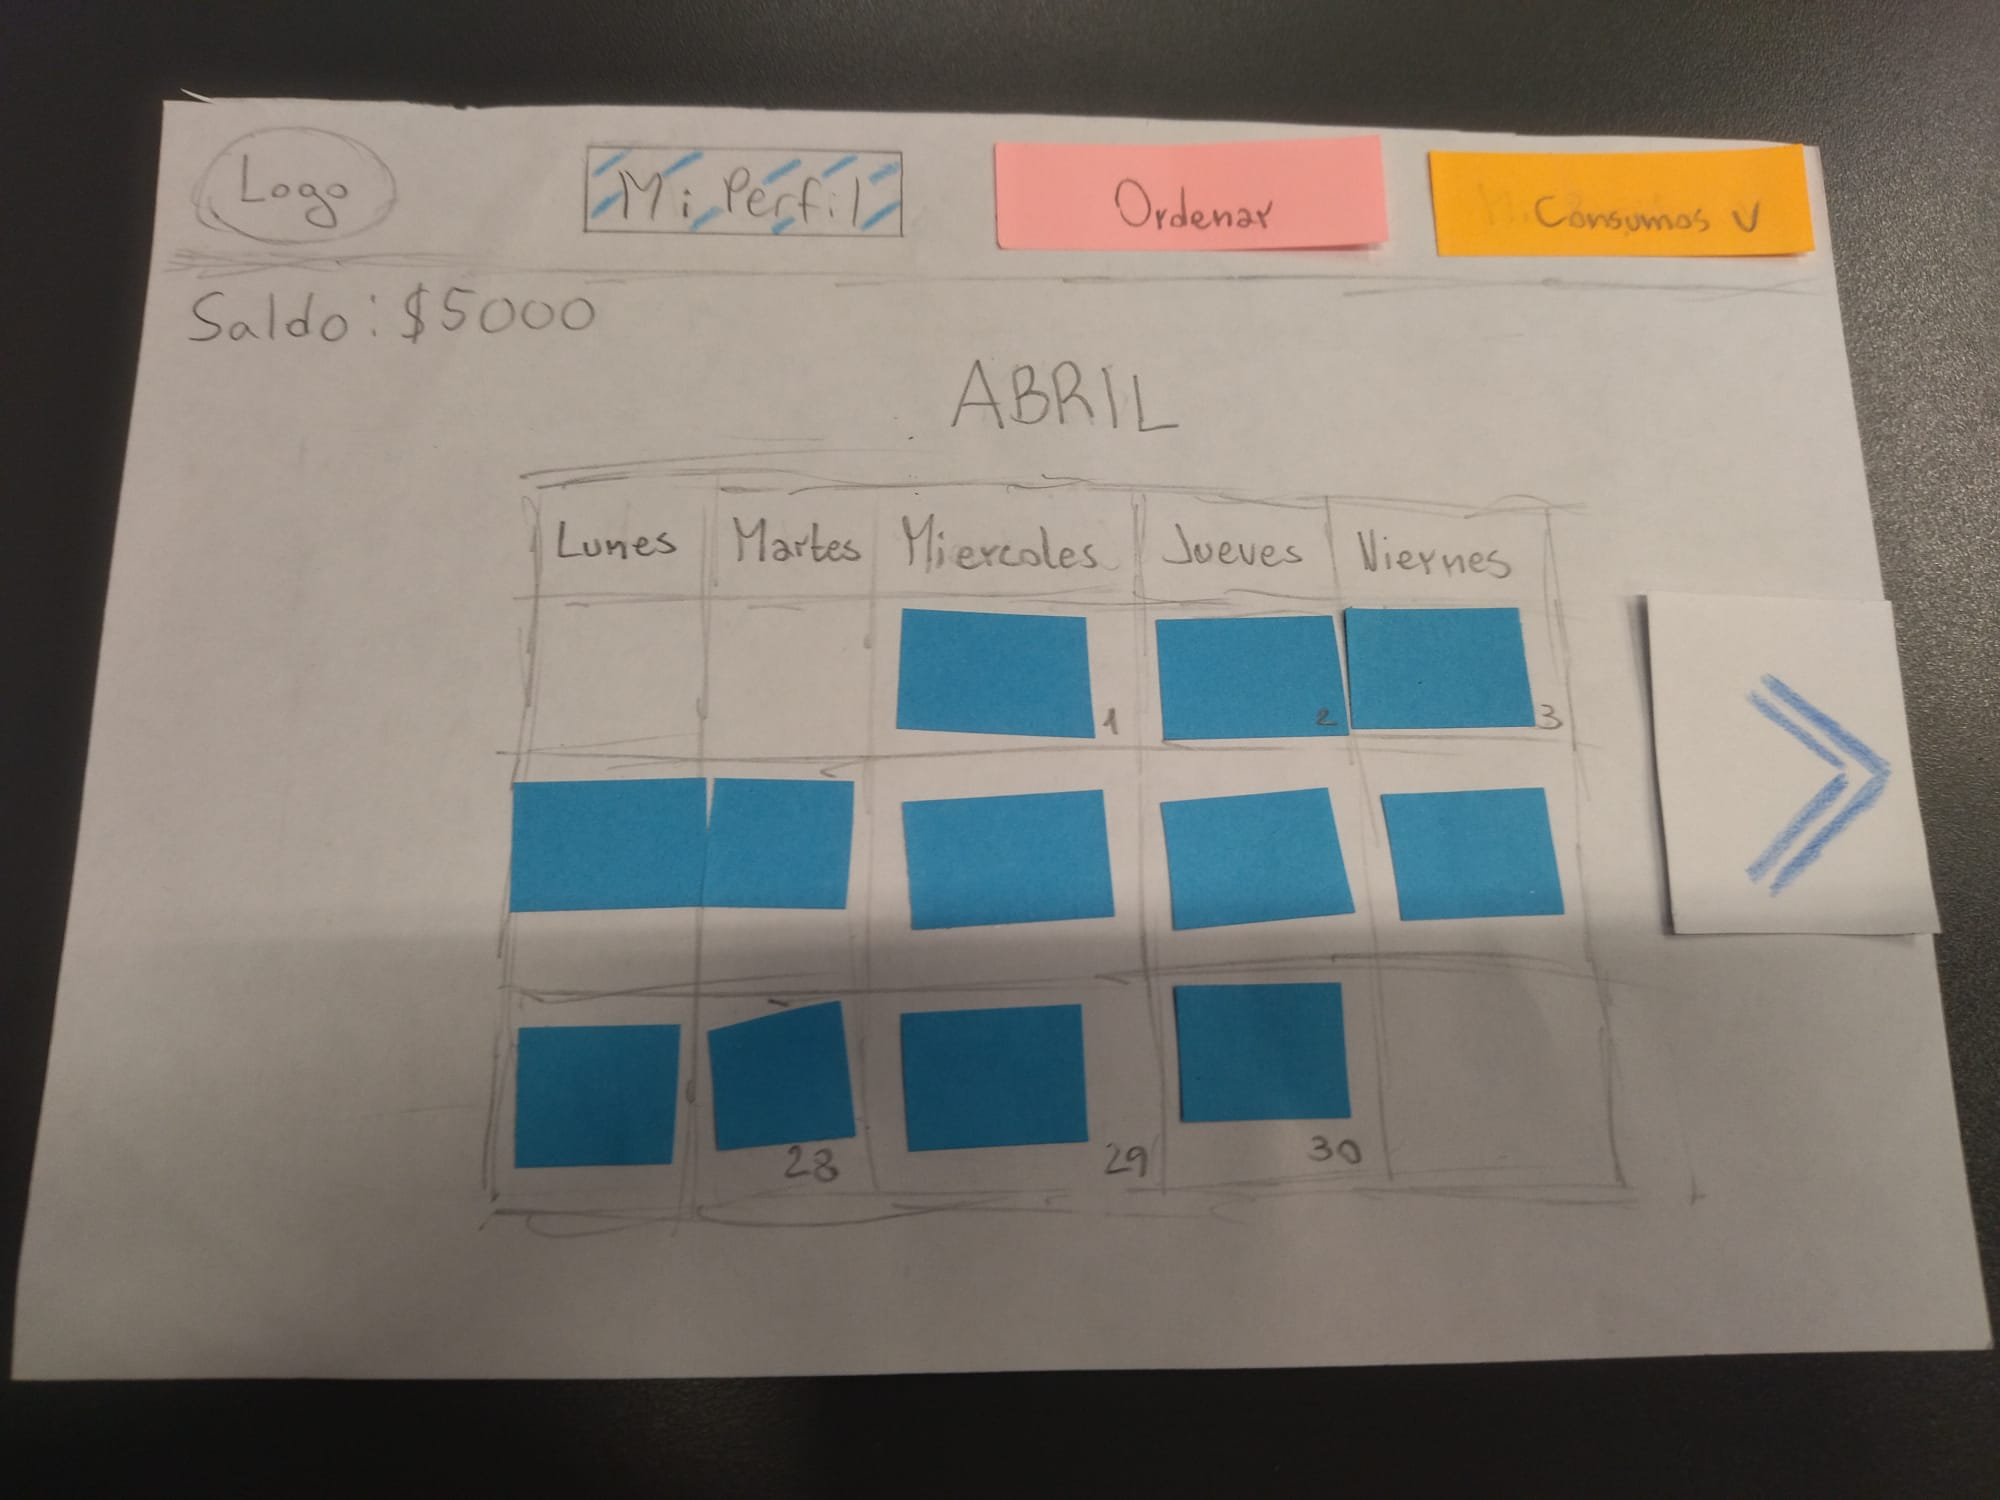 Logo Mi Perfil Ordenar Consumos V
Saldo: $5000
ABRIL
Lunes Martes Miercoles Jueves Viernes
1 2 3
28 29 30